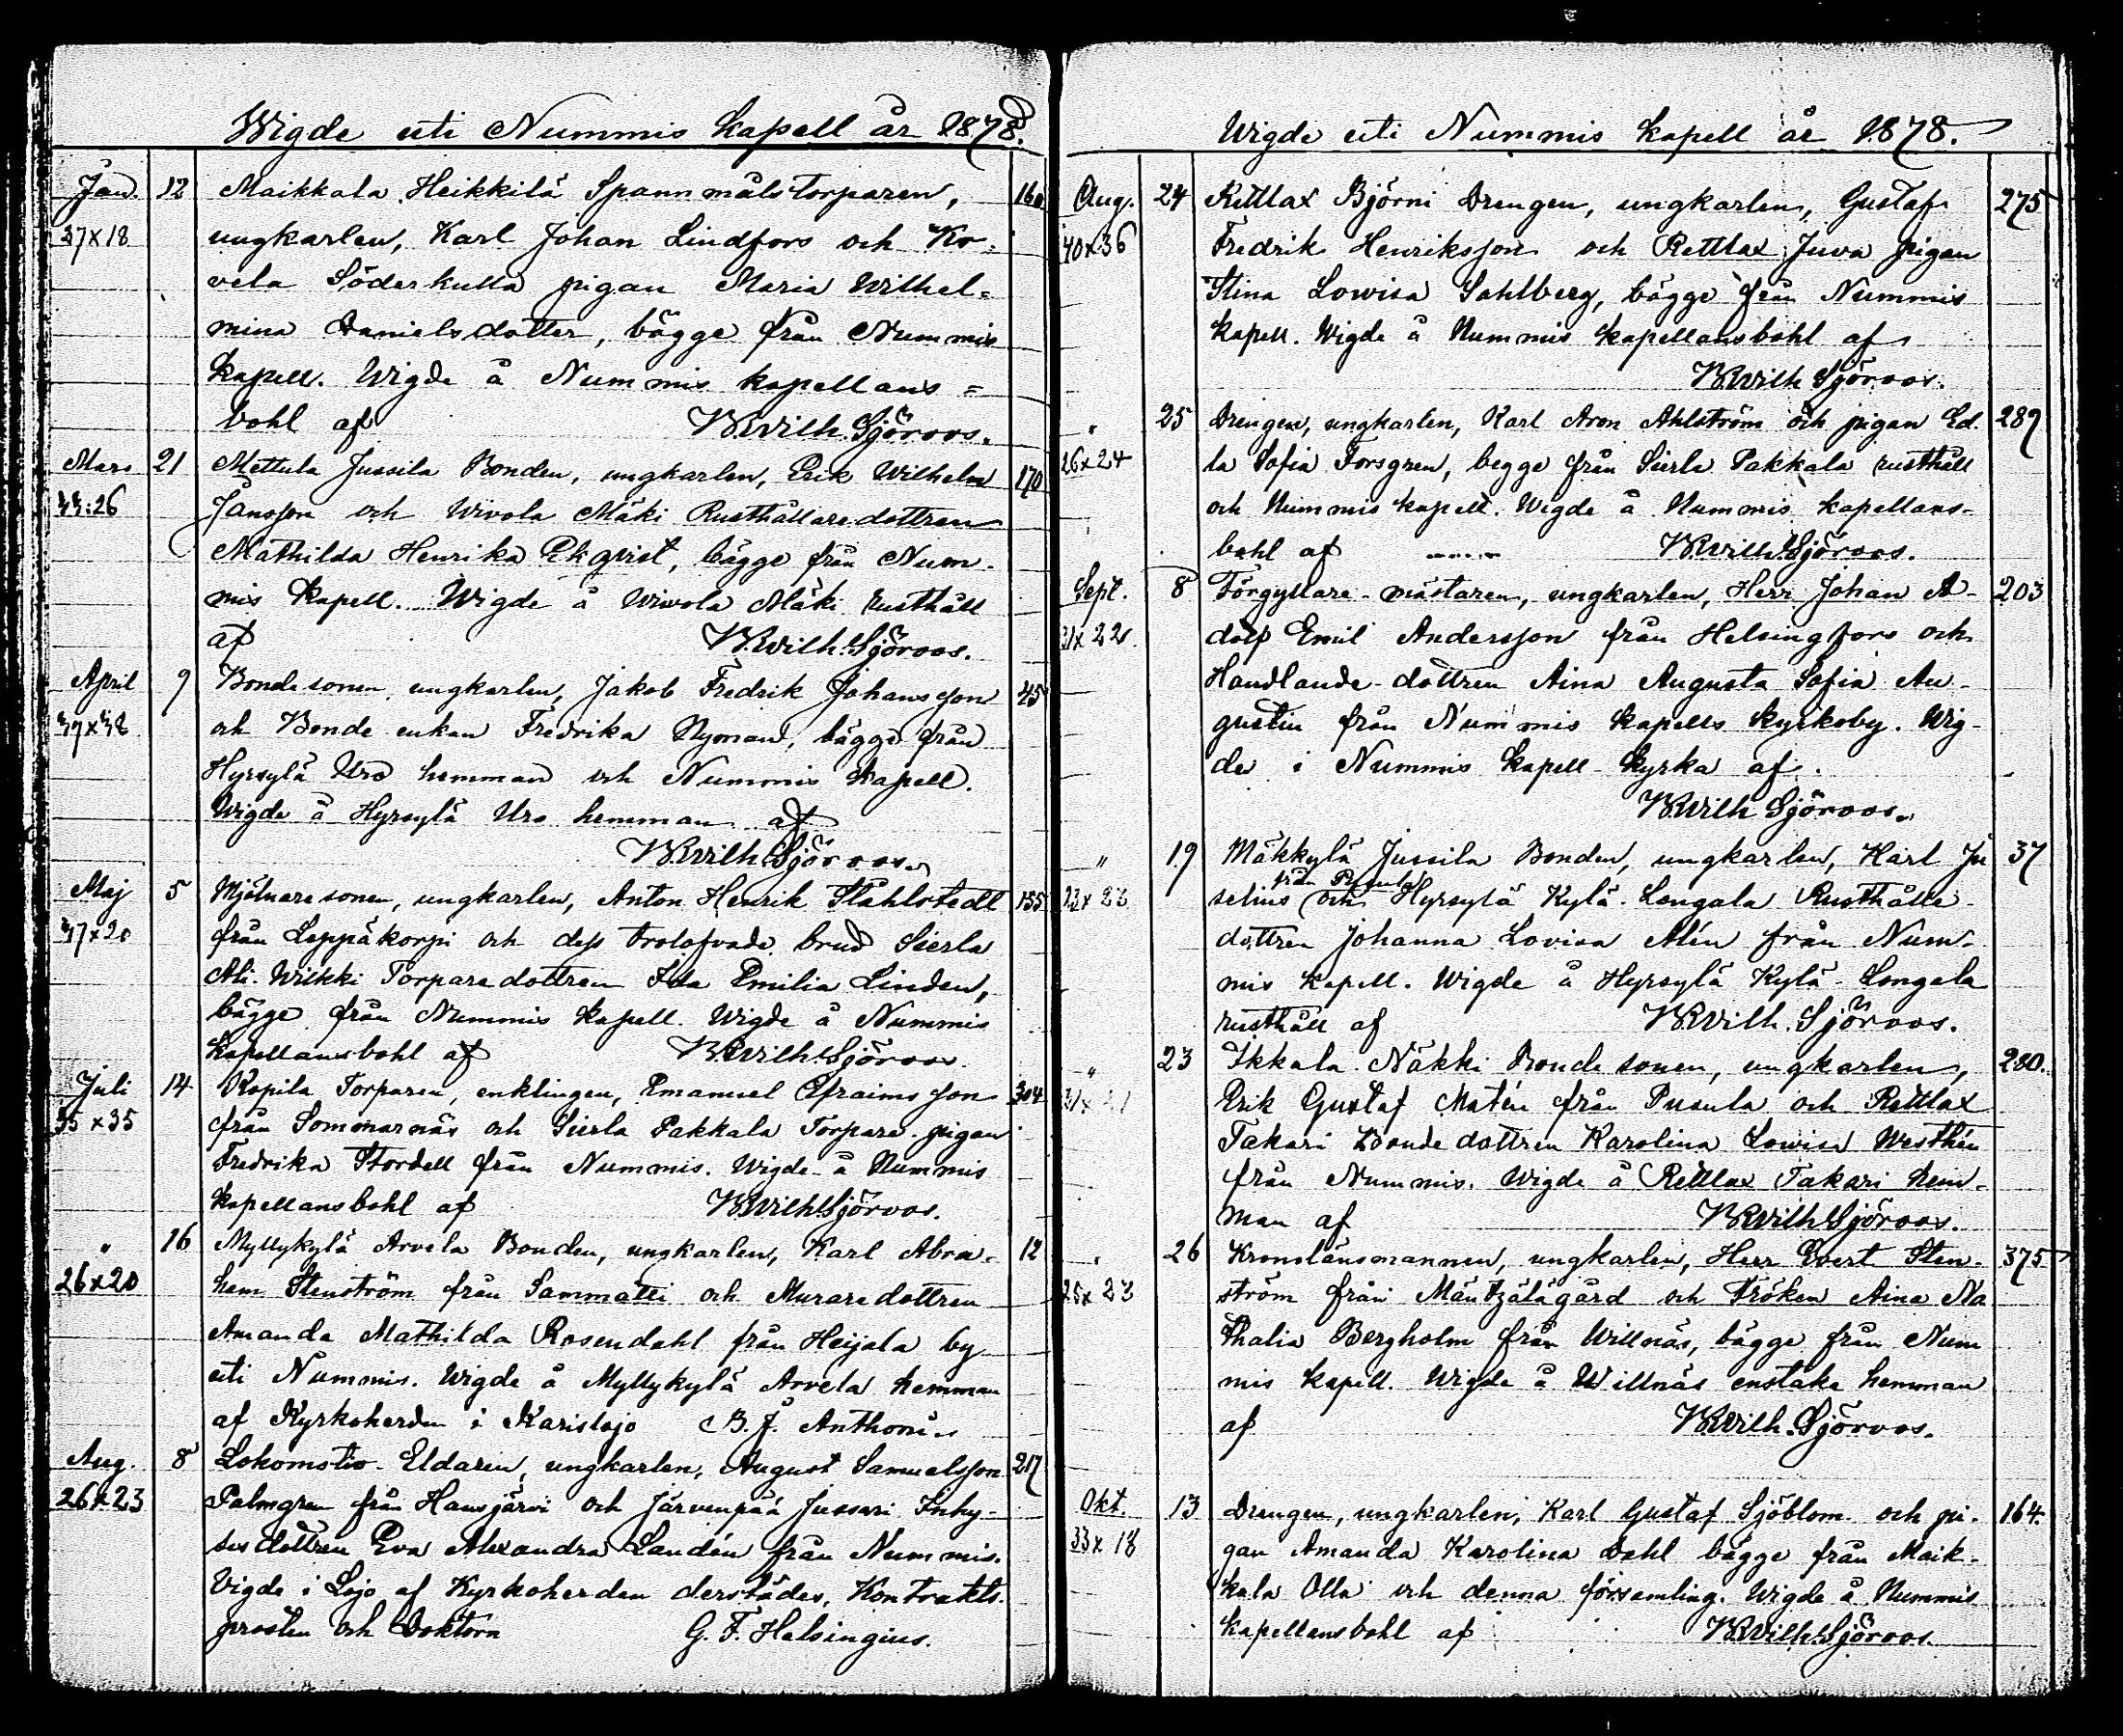 Wigde uti Nummis Kapell år 1878.
Jan. 12 Maikkala Heikkilä Spannmålstorparen, 160
27x18 ungkarlen, Karl Johan Lindfors och Ko-
vela Söderkulla pigan Maria Wilhel=
mina Danielsdotter, bägge från Nummis
Kapell. Wigde å Nummis kapellans=
bohl af KWilh. Sjöroos.
Mars 21 Mettula Jussila Bonden, ungkarlen, Erik Wilhelm 170
33:26 Jansson och Wivola Mäki Rusthållaredottren
Mathilda Henrika Ekqvist, bägge från Num-
mis Kapell. Wigde å Wiwola Mäki rusthåll
af KWilh. Sjöroos.
April 9 Bondesonen, ungkarlen, Jakob Fredrik Johansson 45
37x38 och Bonde enkan Fredrika Nyman, bägge från
Hyrsylä Uro hemman och Nummis Kapell.
Wigde å Hyrsylä Uro hemman af
KWilh. Sjöroos.
Maj 5 Mjölnaresonen, ungkarlen, Anton Henrik Ståhlstedt 155
37x20 från Leppäkorpi och dess trolofvade brud Sierla
Ali-Wilkki Torparedottren Ida Emilia Linden,
bägge från Nummis Kapell. Wigde å Nummis
Kapellansbohl af KWilh. Sjöroos.
Juli 14 Kopila Torparen, enklingen, Emanuel Efraimsson 304
35x35 från Sommarnäs och Sierla Pakkala Torpare-pigan
Fredrika Stordell från Nummis. Wigde å Nummis
kapellansbohl af KWilh. Sjöroos.
" 16 Myllykylä Arvela Bonden, ungkarlen, Karl Abra- 12
26x20 ham Stenström från Sammatti och Muraredottren
Amanda Mathilda Rosendahl från Heijala by
uti Nummis. Wigde å Myllykylä Arvela hemman
af Kyrkoherden i Karislojo B. J. Anthoni.
Aug. 8 Lokomotiv-Eldaren, ungkarlen, August Samuelsson 217
26x23 Palmgren från Hausjärvi och Järvenpää Jussari Inhy-
sesdottren Eva Alexandra Landén från Nummis.
Vigde i Lojo af Kyrkoherden derstädes, Kontrakts-
prosten och Doktorn G. F. Helsingius.
Wigde uti Nummis kapell år 1878.
Aug. 24 Rettlax Björni Drengen, ungkarlen, Gustaf 275
40x36 Fredrik Henriksson och Rettlax Juva pigan
Stina Lowisa Sahlberg, bägge från Nummis
kapell. Wigde å Nummis kapellansbohl af
KWilh Sjöroos.
" 25 Drengen, ungkarlen, Karl Aron Ahlström och pigan Ed- 287
26x24 la Sofia Forsgren, begge från Sierla Pakkala rusthåll
och Nummis kapell. Wigde å Nummis kapellans-
bohl af KWilh. Sjöroos.
Sept. 8 Förgyllare-mästaren, ungkarlen, Herr Johan A- 203
31x22 dolf Emil Andersson från Helsingfors och
Handlande-dottren Aina Augusta Sofia Au-
gustin från Nummis kapells kyrkoby. Wig-
de i Nummis Kapell-kyrka af
KWilh Sjöroos.
" 19 Mäkkylä Jussila Bonden, ungkarlen, Karl Ju 37
från Pusula
23x23 selius och Hyrsylä Kylä-Longala Rusthålls-
dottren Johanna Lovisa Alén från Num-
mis kapell. Wigde å Hyrsylä Kylä-Longala
rusthåll af KWilh. Sjöroos.
" 23 Ikkala Näkki Bondesonen, ungkarlen, 280.
Erik Gustaf Matén från Pusula och Rettlax
Takari Bondedottren Karolina Lowisa Westhén
från Nummis. Wigde å Rettlax Takari hem-
man af KWilh. Sjöroos.
" 26 Kronolänsmannen, ungkarlen, Herr Evert Sten- 375
25x23 ström från Mäntzälägård och Fröken Aina Na
thalia Bergholm från Willnäs, bägge från Num
mis kapell. Wigde å Willnäs enstaka hemman
af KWilh. Sjöroos.
Okt. 13 Drengen, ungkarlen, Karl Gustaf Sjöblom och pi- 164.
33x18 gan Amanda Karolina Dahl bägge från Maik-
kala Olla och denna församling. Wigde å Nummis
kapellansbohl af KWilh. Sjöroos.